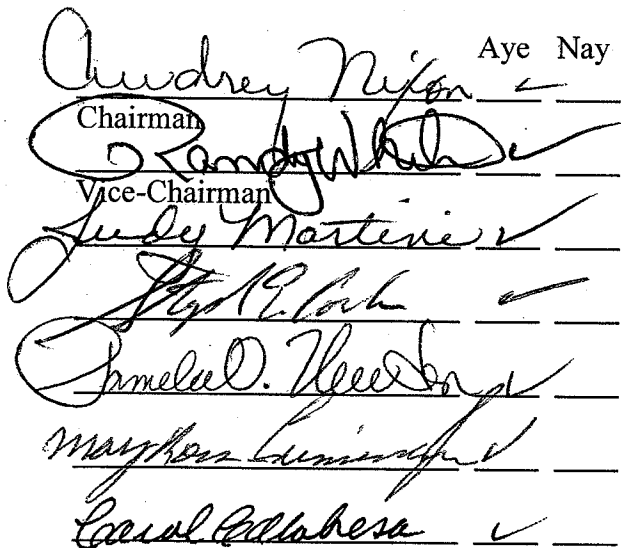 Aye Nay
Audrey Nixon
Chairman
Randy White
Vice-Chairman
Judy Martini
Pamela O. Newton
Mary Ross Cunningham
Carol Calabresa